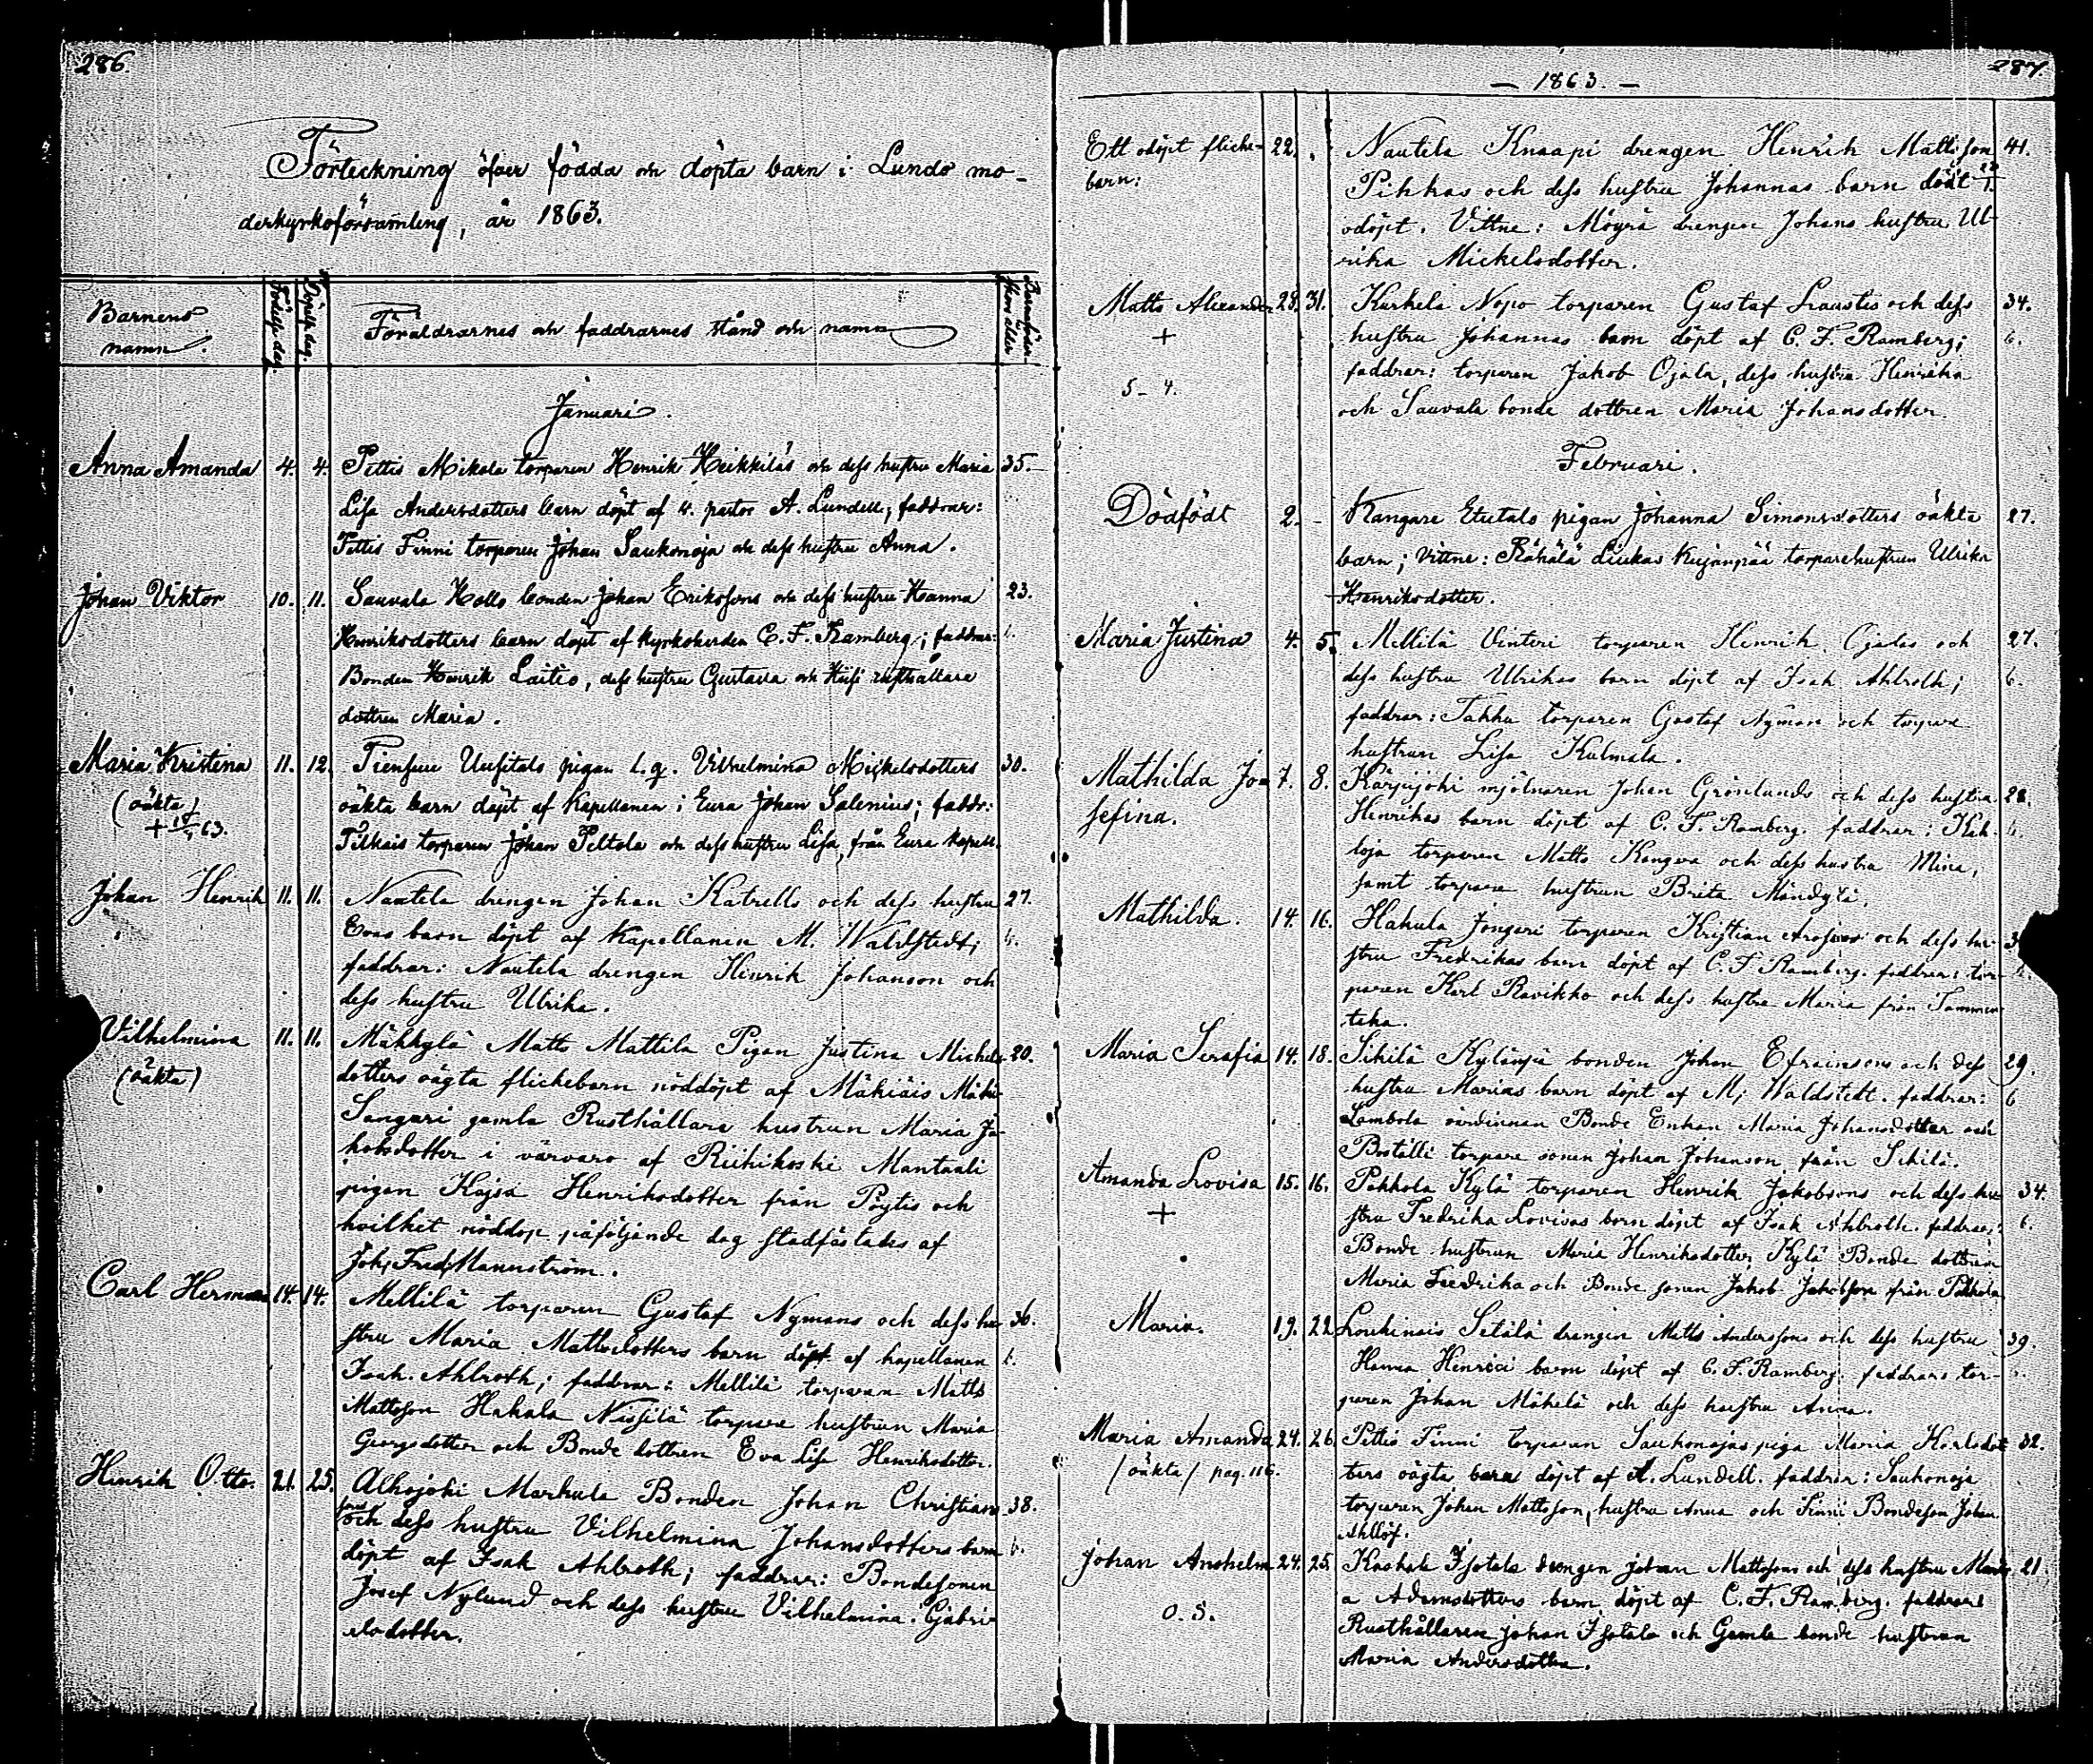 286.
Förteckning öfver födda och döpta barn i Lundo mo-
derkyrkoförsamling, år 1863.
Barnens namn. Födelse dag. Döpelse dag. Föräldrarnes och faddrarnes stånd och namn Barnaföder-skans ålder
Januari.
Anna Amanda 4. 4. Pettis Mikola torparen Henrik Heikkiläs och dess hustru Maria 35.
Lisa Andersdotters barn döpt af v. pastor A. Lundell; faddrar:
Pettis Finni torparen Johan Saukonoja och dess hustru Anna.
Johan Viktor 10. 11. Sauvala Hollo bonden Johan Erikssons och dess hustru Hanna 23.
Henriksdotters barn döpt af kyrkoherden C. F. Ramberg; faddrar:
Bonden Henrik Laitio, dess hustru Gustava och Hiisi rusthållare
dottren Maria.
Maria Kristina 11. 12. Uusitalo pigan l. q. Vilhelmina Mickelsdotters 30.
(oäkta) oäkta barn döpt af Kapellanen i Eura Johan Salenius; faddr:
+ 63. torparen Johan Peltola och dess hustru Lisa, från Eura kapell.
Johan Henrik 11. 11. Nautela drengen Johan Katrells och dess hustru 27.
Evas barn döpt af Kapellanen M. Waldstedt; 6.
faddrar: Nautela drengen Henrik Johanson och
dess hustru Ulrika.
Vilhelmina 11. 11. Mäkkylä Matts Mattila Pigan Justina Michels- 20.
(oäkta) dotters oägta flickebarn nöddöpt af Mäkiäis
gamla Rusthållare hustrun Maria Ja-
kobsdotter i närvaro af Riihikoski Mantaali
pigan Kajsa Henriksdotter från Pöytis och
hvilket nöddop påföljande dag stadfästades af
Joh. Fred. Mannström.
Carl Herman 14. 14. Mellilä torparen Gustaf Nymans och dess hu- 36.
stru Maria Mattsdotters barn döpt af kapellanen 6.
Isak Ahlroth; faddrar: Mellilä torparen Matts
Mattsson Hakala torpare hustrun Maria
Georgsdotter och Bonde dottren Eva Lisa Henriksdotter.
Henrik Otto. 21. 25. Alhojoki Markula Bonden Johan Christians- 38.
sons och dess hustru Vilhelmina Johansdotters barn 6.
döpt af Isak Ahlroth; faddrar: Bondesonen
Josef Nylund och dess hustru Vilhelmina Gabri-
elsdotter.
287.
— 1863. —
Ett odöpt flicke- 22. Nautela Knaapi drengen Henrik Mattsson 41.
barn: Pihkas och dess hustru Johannas barn dödt 22/1.
odöpt. Vittne: Möyrä drengen Johans hustru Ul-
rika Mickelsdotter.
Matts Alexander 28. 31. Kurkela Nopo torparen Gustaf Laustis och dess 34.
+ hustru Johannas barn döpt af C. F. Ramberg; 6.
5-4. faddrar: torparen Jakob Ojala, dess hustru Henrika
och Sauvala bonde dottren Maria Johansdotter.
Februari.
Dödfödt 2. - Kangare Etutalo pigan Johanna Simonsdotters oäkta 27.
barn; Vittne: Rähälä torparehustrun Ulrika
Henriksdotter.
Maria Justina 4. 5. Mellilä Vinteri torparen Henrik Ojalas och 27.
dess hustru Ulrikas barn döpt af Isak Ahlroth; 6.
faddrar: Takku torparen Gustaf Nyman och torpare
hustrun Lisa Kulmala.
Mathilda Jo- 7. 8. Kärpijoki mjölnaren Johan Grönlunds och dess hustru 28.
sefina. Henrikas barn döpt af C. F. Ramberg. faddrar:
torparen Matts och dess hustru Mina,
samt torpare hustrun Brita
Mathilda. 14. 16. Hakula Jongeri torparen Kristian och dess hu-
stru Fredrikas barn döpt af C. F. Ramberg. faddrar: tor-
paren Karl Ravikko och dess hustru Maria från

Maria Serafia 14. 18. Sikilä bonden Johan Efraimsons och dess 29.
hustru Marias barn döpt af M. Waldstedt. faddrar: 6
Lambola värdinnan Bonde Enkan Maria Johansdotter och
Boställe torpare sonen Johan Johanson från Sikilä.
Amanda Lovisa 15. 16. Pakkola Kylä torparen Henrik Jakobsons och dess hu- 34.
+ stru Fredrika Lovisas barn döpt af Isak Ahlroth. faddrar: 6.
Bonde hustrun Maria Henriksdotter, Kylä Bonde dottren
Maria Fredrika och Bonde sonen Jakob Jakobson från Pakkola
Maria. 19. 22. Loukinais Setälä drengen Matts Anderssons och dess hustru 39.
Hanna Henrici barn döpt af C. F. Ramberg. faddrar: tor-
paren Johan Mäkelä och dess hustru Anna.
Maria Amanda 24. 26. Pettis Finni torparen Saukonojas piga Maria Karlsdot- 32.
/ oäkta / pag. 116. ters oägta barn döpt af A. Lundell. faddrar: Saukonoja
torparen Johan Mattsson, hustru Anna och Finni Bondeson Johan
Ahllöf.
Johan Anshelm 24. 25. Isotalo drengen Johan Mattssons och dess hustru Mari- 21.
a Adamsdotters barn döpt af C. F. Ramberg. faddrar:
O. S. Rusthållaren Johan Isotalo och Gamla bonde hustrun
Maria Andersdotter.